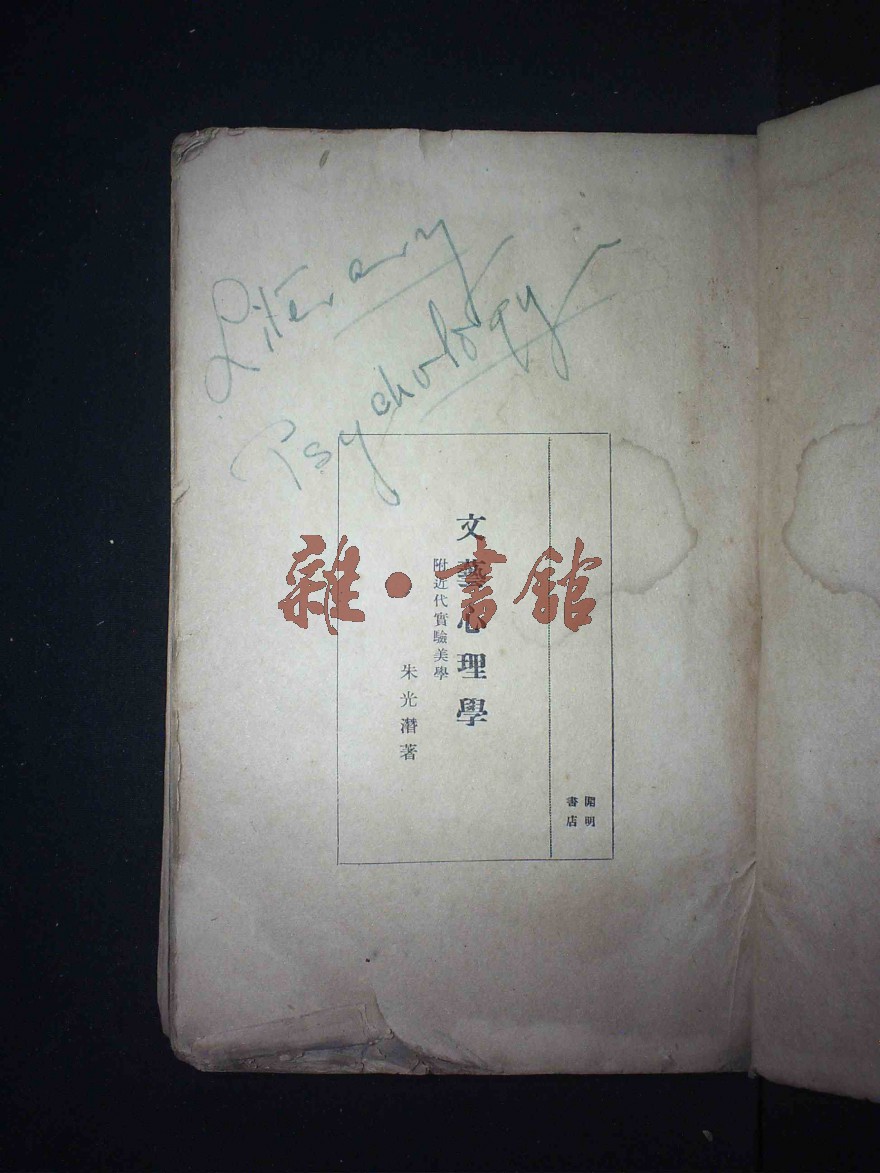 Literary
Psychology
文藝心理學
附近代實驗美學
朱光潛著
開明
書店
雜·書館